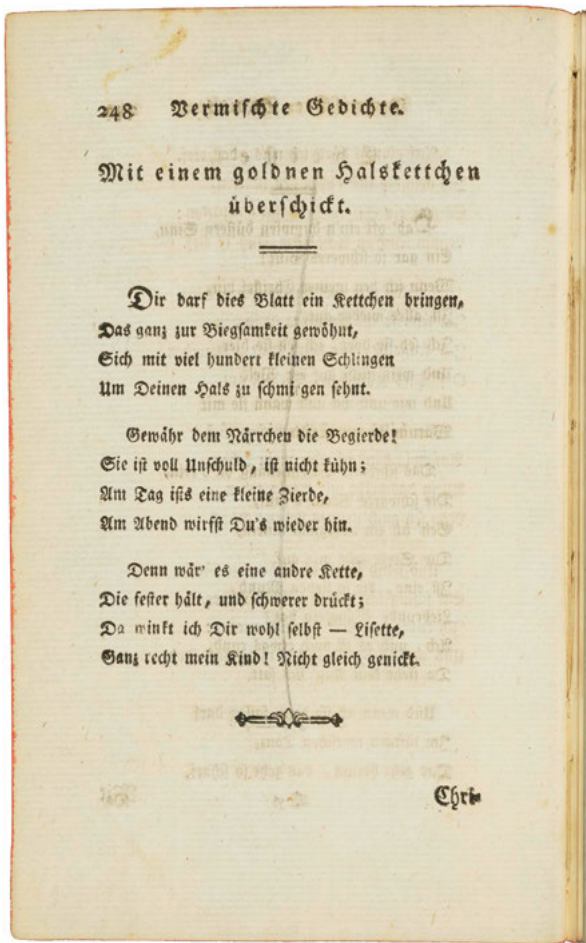 248 Vermischte Gedichte.
Mit einem goldnen Halskettchen
überschickt.
Dir darf dies Blatt ein Kettchen bringen,
Das ganz zur Biegsamkeit gewöhnt,
Sich mit viel hundert kleinen Schlingen
Um Deinen Hals zu schmi gen sehnt.
Gewähr dem Närrchen die Begierde!
Sie ist voll Unschuld, ist nicht kühn;
Am Tag ists eine kleine Zierde,
Am Abend wirfst Du's wieder hin.
Denn wär' es eine andre Kette,
Die fester hält, und schwerer drückt;
Da winkt ich Dir wohl selbst — Lisette,
Ganz recht mein Kind! Nicht gleich genickt.
Chri-